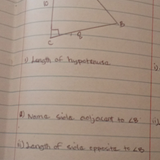 B
C
i) Length of hypotenuse
ii) Name side adjacent to ∠B
iii) Length of side opposite to ∠B